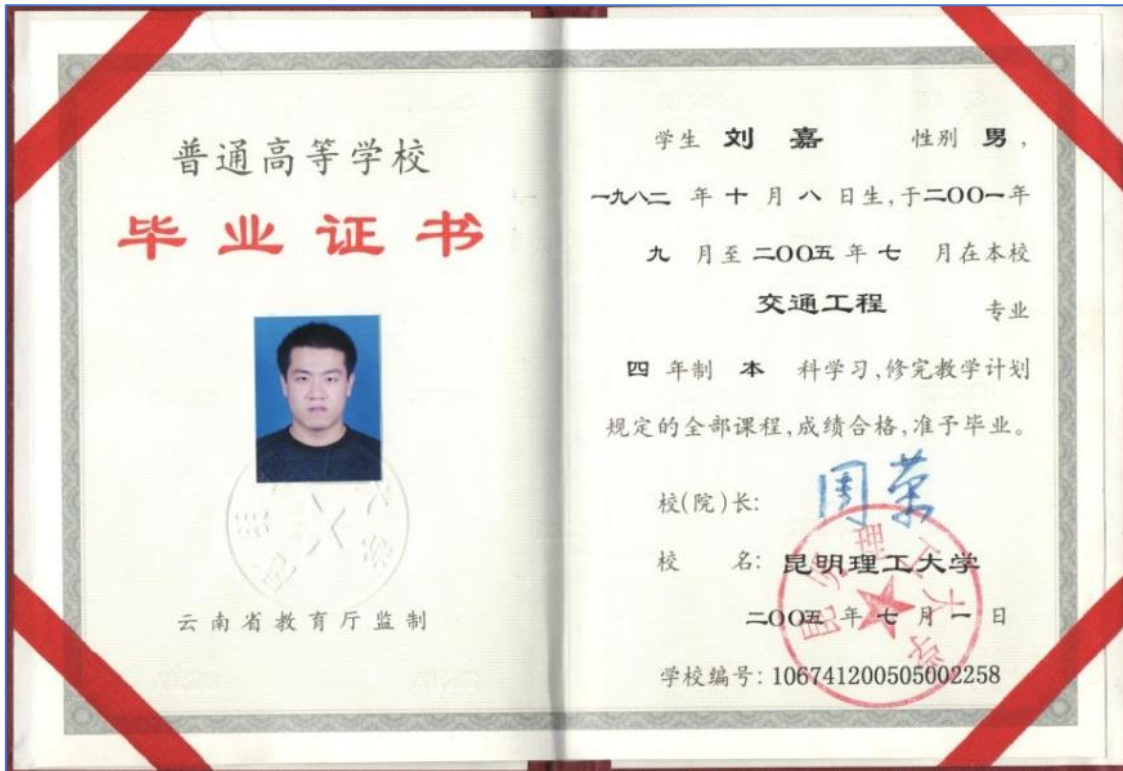 普通高等学校
毕业证书
云南省教育厅监制
学生 刘 嘉 性别 男,
一九八二 年 十 月 八 日生,于二〇〇一年
九 月至 二〇〇五 年 七 月在本校
交通工程 专业
四 年制 本 科学习,修完教学计划
规定的全部课程,成绩合格,准予毕业。
校(院)长: 周荣
校 名: 昆明理工大学
昆明理工大学
二〇〇五 年 七 月 一 日
学校编号: 106741200505002258